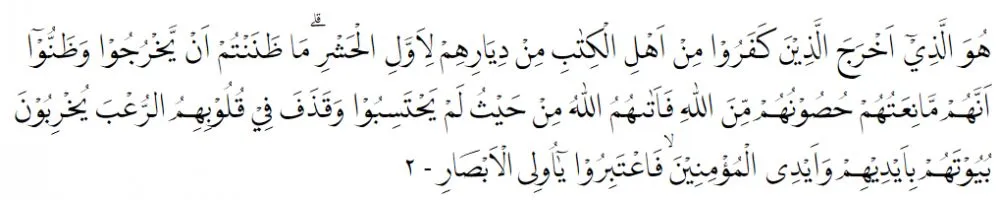 هُوَ الَّذِيْٓ اَخْرَجَ الَّذِيْنَ كَفَرُوْا مِنْ اَهْلِ الْكِتٰبِ مِنْ دِيَارِهِمْ لِاَوَّلِ الْحَشْرِۗ مَا ظَنَنْتُمْ اَنْ يَّخْرُجُوْا وَظَنُّوْٓا
اَنَّهُمْ مَّانِعَتُهُمْ حُصُوْنُهُمْ مِّنَ اللّٰهِ فَاَتٰىهُمُ اللّٰهُ مِنْ حَيْثُ لَمْ يَحْتَسِبُوْا وَقَذَفَ فِيْ قُلُوْبِهِمُ الرُّعْبَ يُخْرِبُوْنَ
بُيُوْتَهُمْ بِاَيْدِيْهِمْ وَاَيْدِى الْمُؤْمِنِيْنَۙ فَاعْتَبِرُوْا يٰٓاُولِى الْاَبْصَارِ - ٢